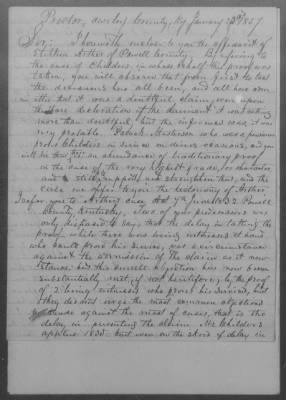 Proctor, Owsley County, Ky January 23d 1857
Sir; I herewith enclose to you the affidavit of
Arther of Powell County. By refering to
the case of Childers in whose behalf this proof was
taken, you will observe that from first to last
the decisions has all been, and all have
either that it was a doubtful claim, even upon
declaration of the claimant it was
more than doubtful but the inference was it was
very probable. Patrick Masterson who was a pensioner
proves Childers in service on divers occasions, and you
will see that an abundance of traditionary proof
in the case of the very highest grade, for character
and to strengthen this, and the
case we offer to you the testimony of Arther
I refer you to Arthers case Act 7th June 1832 Powell
County Kentucky, One of your predecessors was
only disposed to say, that the delay in taking the
proof while there was living witnesses at hand,
who could prove his service, was a circumstance
against the admission of the claim as it now
stands but this objection has now been
substantially met, if not heretofore, by the proof
of 2 living witnesses who proves his service, but
they did not urge the most common objection
against the most of cases, that is the
delay, in presenting the claim Mr Childers
applied 1833 but even on the score of delay in